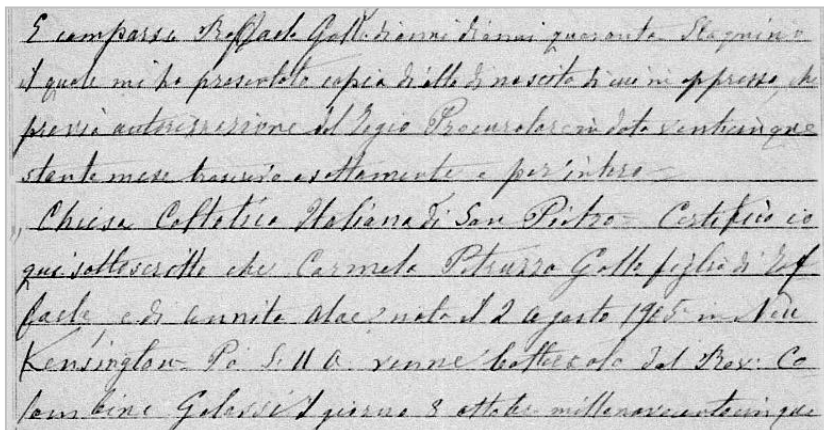 E comparso Raffaele Gatto di anni di anni quaranta Stagnino
il quale mi ha presentato copia di atto di nascita di cui in appresso, che
previa autorizzazione del Regio Procuratore in data venticinque
stante mese trascrivo esattamente e per intero
"Chiesa Cattolica Italiana di San Pietro - Certifico io
qui sottoscritto che Carmela Petruzza Gatto figlia di Raf
faele e di Annita nata il 2 agosto 1905 in New
Kensington Pa S. U. A. venne battezzata dal Rev. Co
lombino Galassi il giorno 8 ottobre millenovecentocinque